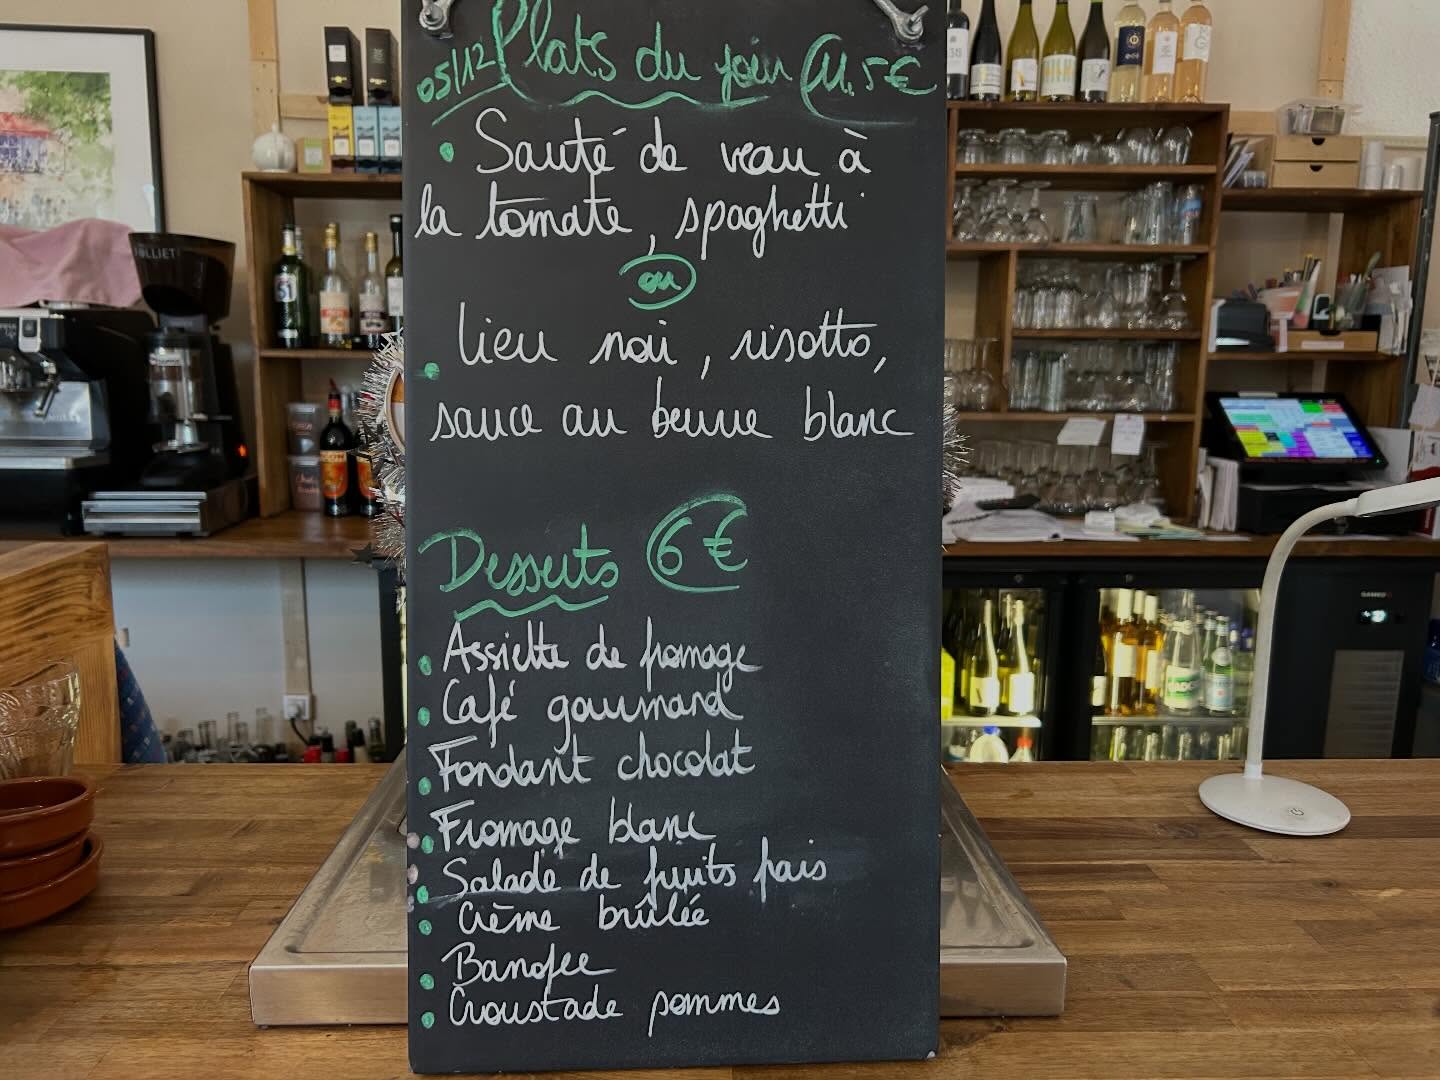 05/12 Plats du jour 11.5€
• Sauté de veau à
la tomate, spaghetti
ou
• lieu noir, risotto,
sauce au beurre blanc
Desserts 6€
• Assiette de fromage
• Café gourmand
• Fondant chocolat
• Fromage blanc
• Salade de fruits frais
• Crème brûlée
• Banofee
• Croustade pommes